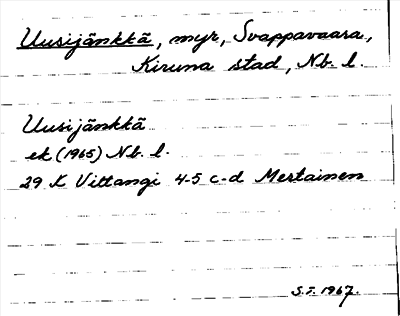 Uusijänkkä, myr, Svappavaara,
Kiruna stad, Nb. l.
Uusijänkkä
ek (1965) Nb. l.
29 K Vittangi 4-5 c-d Mertainen
S.I. 1967.